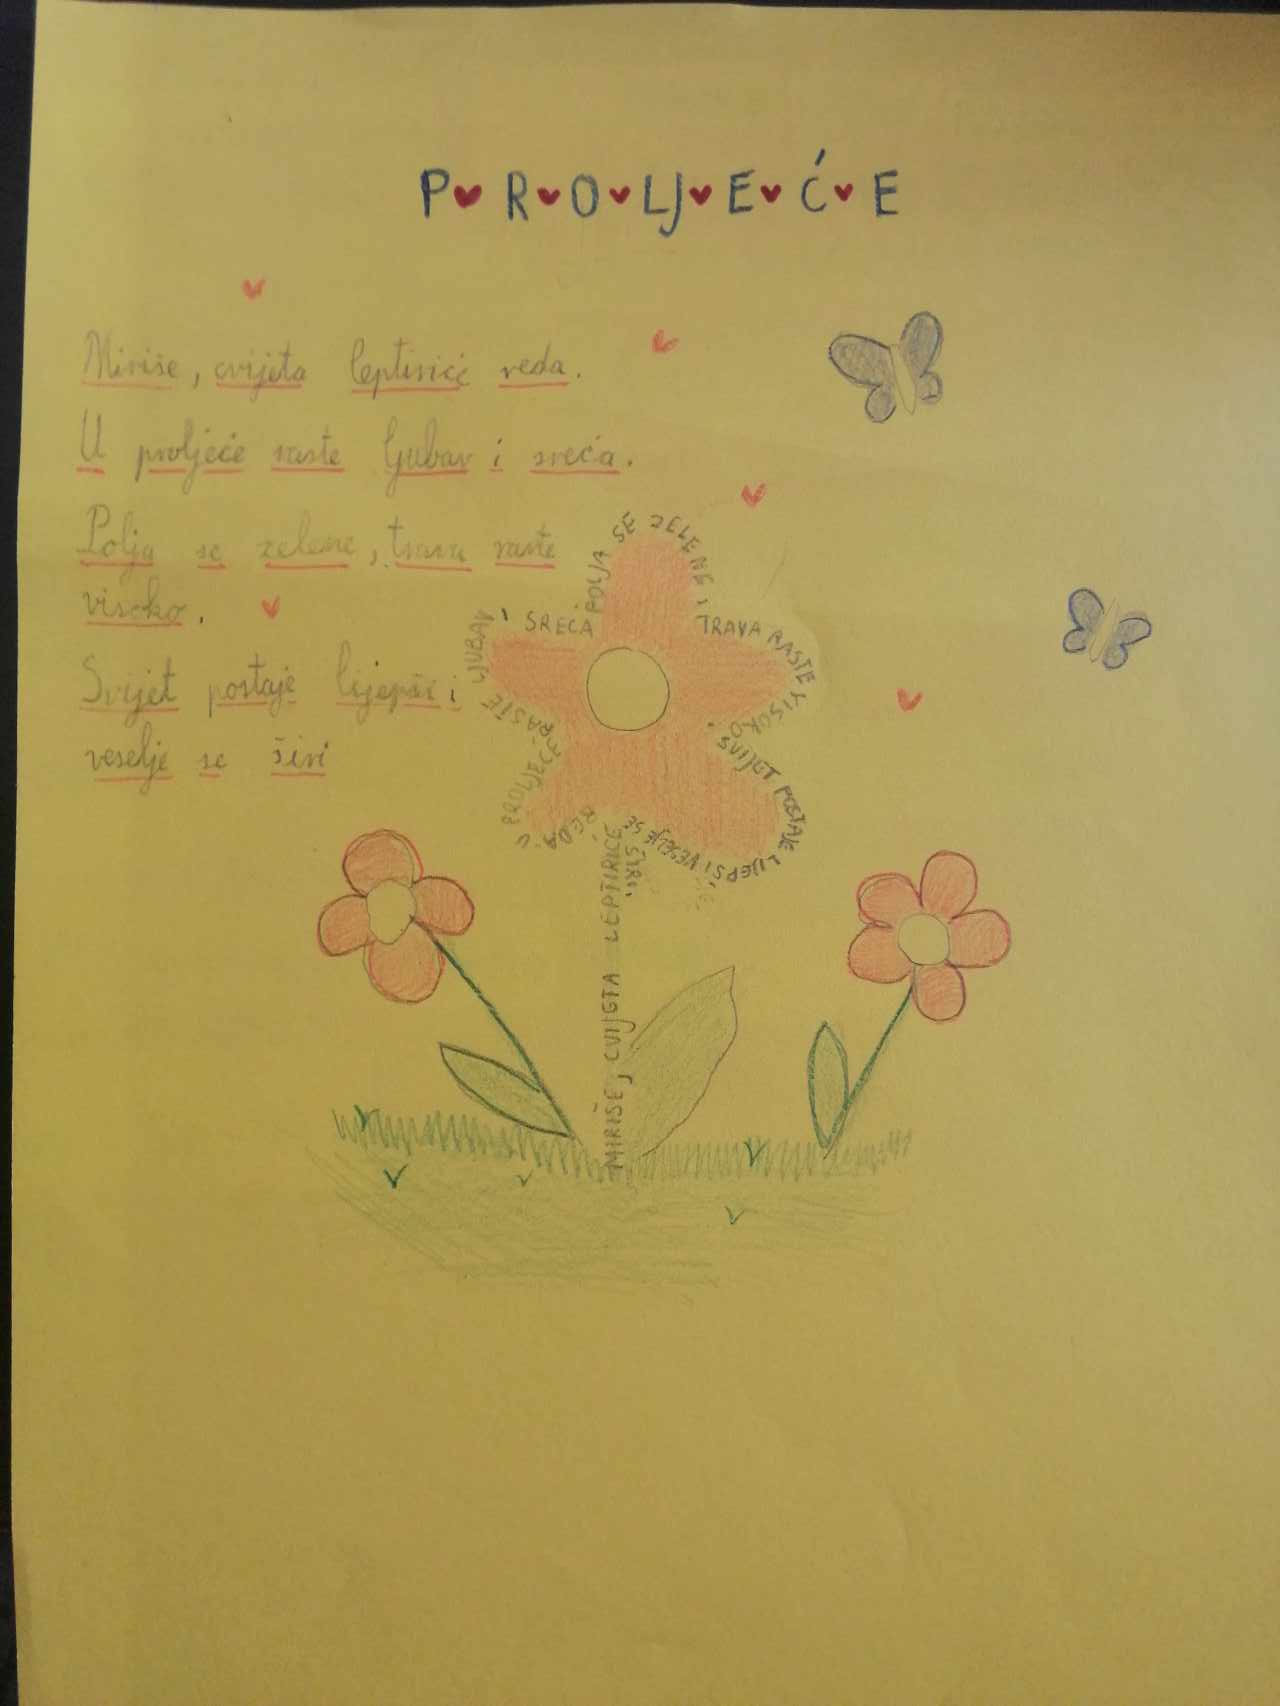 P R O LJ E Ć E
Miriše, cvijeta leptirić reda.
U proljeće raste ljubav i sreća.
Polja se zelene, trava raste
visoko.
Svijet postaje ljepši i
veselje se širi
MIRIŠE, CVIJETA LEPTIRICE
REDA. U PROLJEĆE RASTE LJUBAV I SREĆA
POLJA SE ZELENE, TRAVA RASTE VISOKO.
SVIJET POSTAJE LIJEPŠI I VESELJE SE
ŠIRI